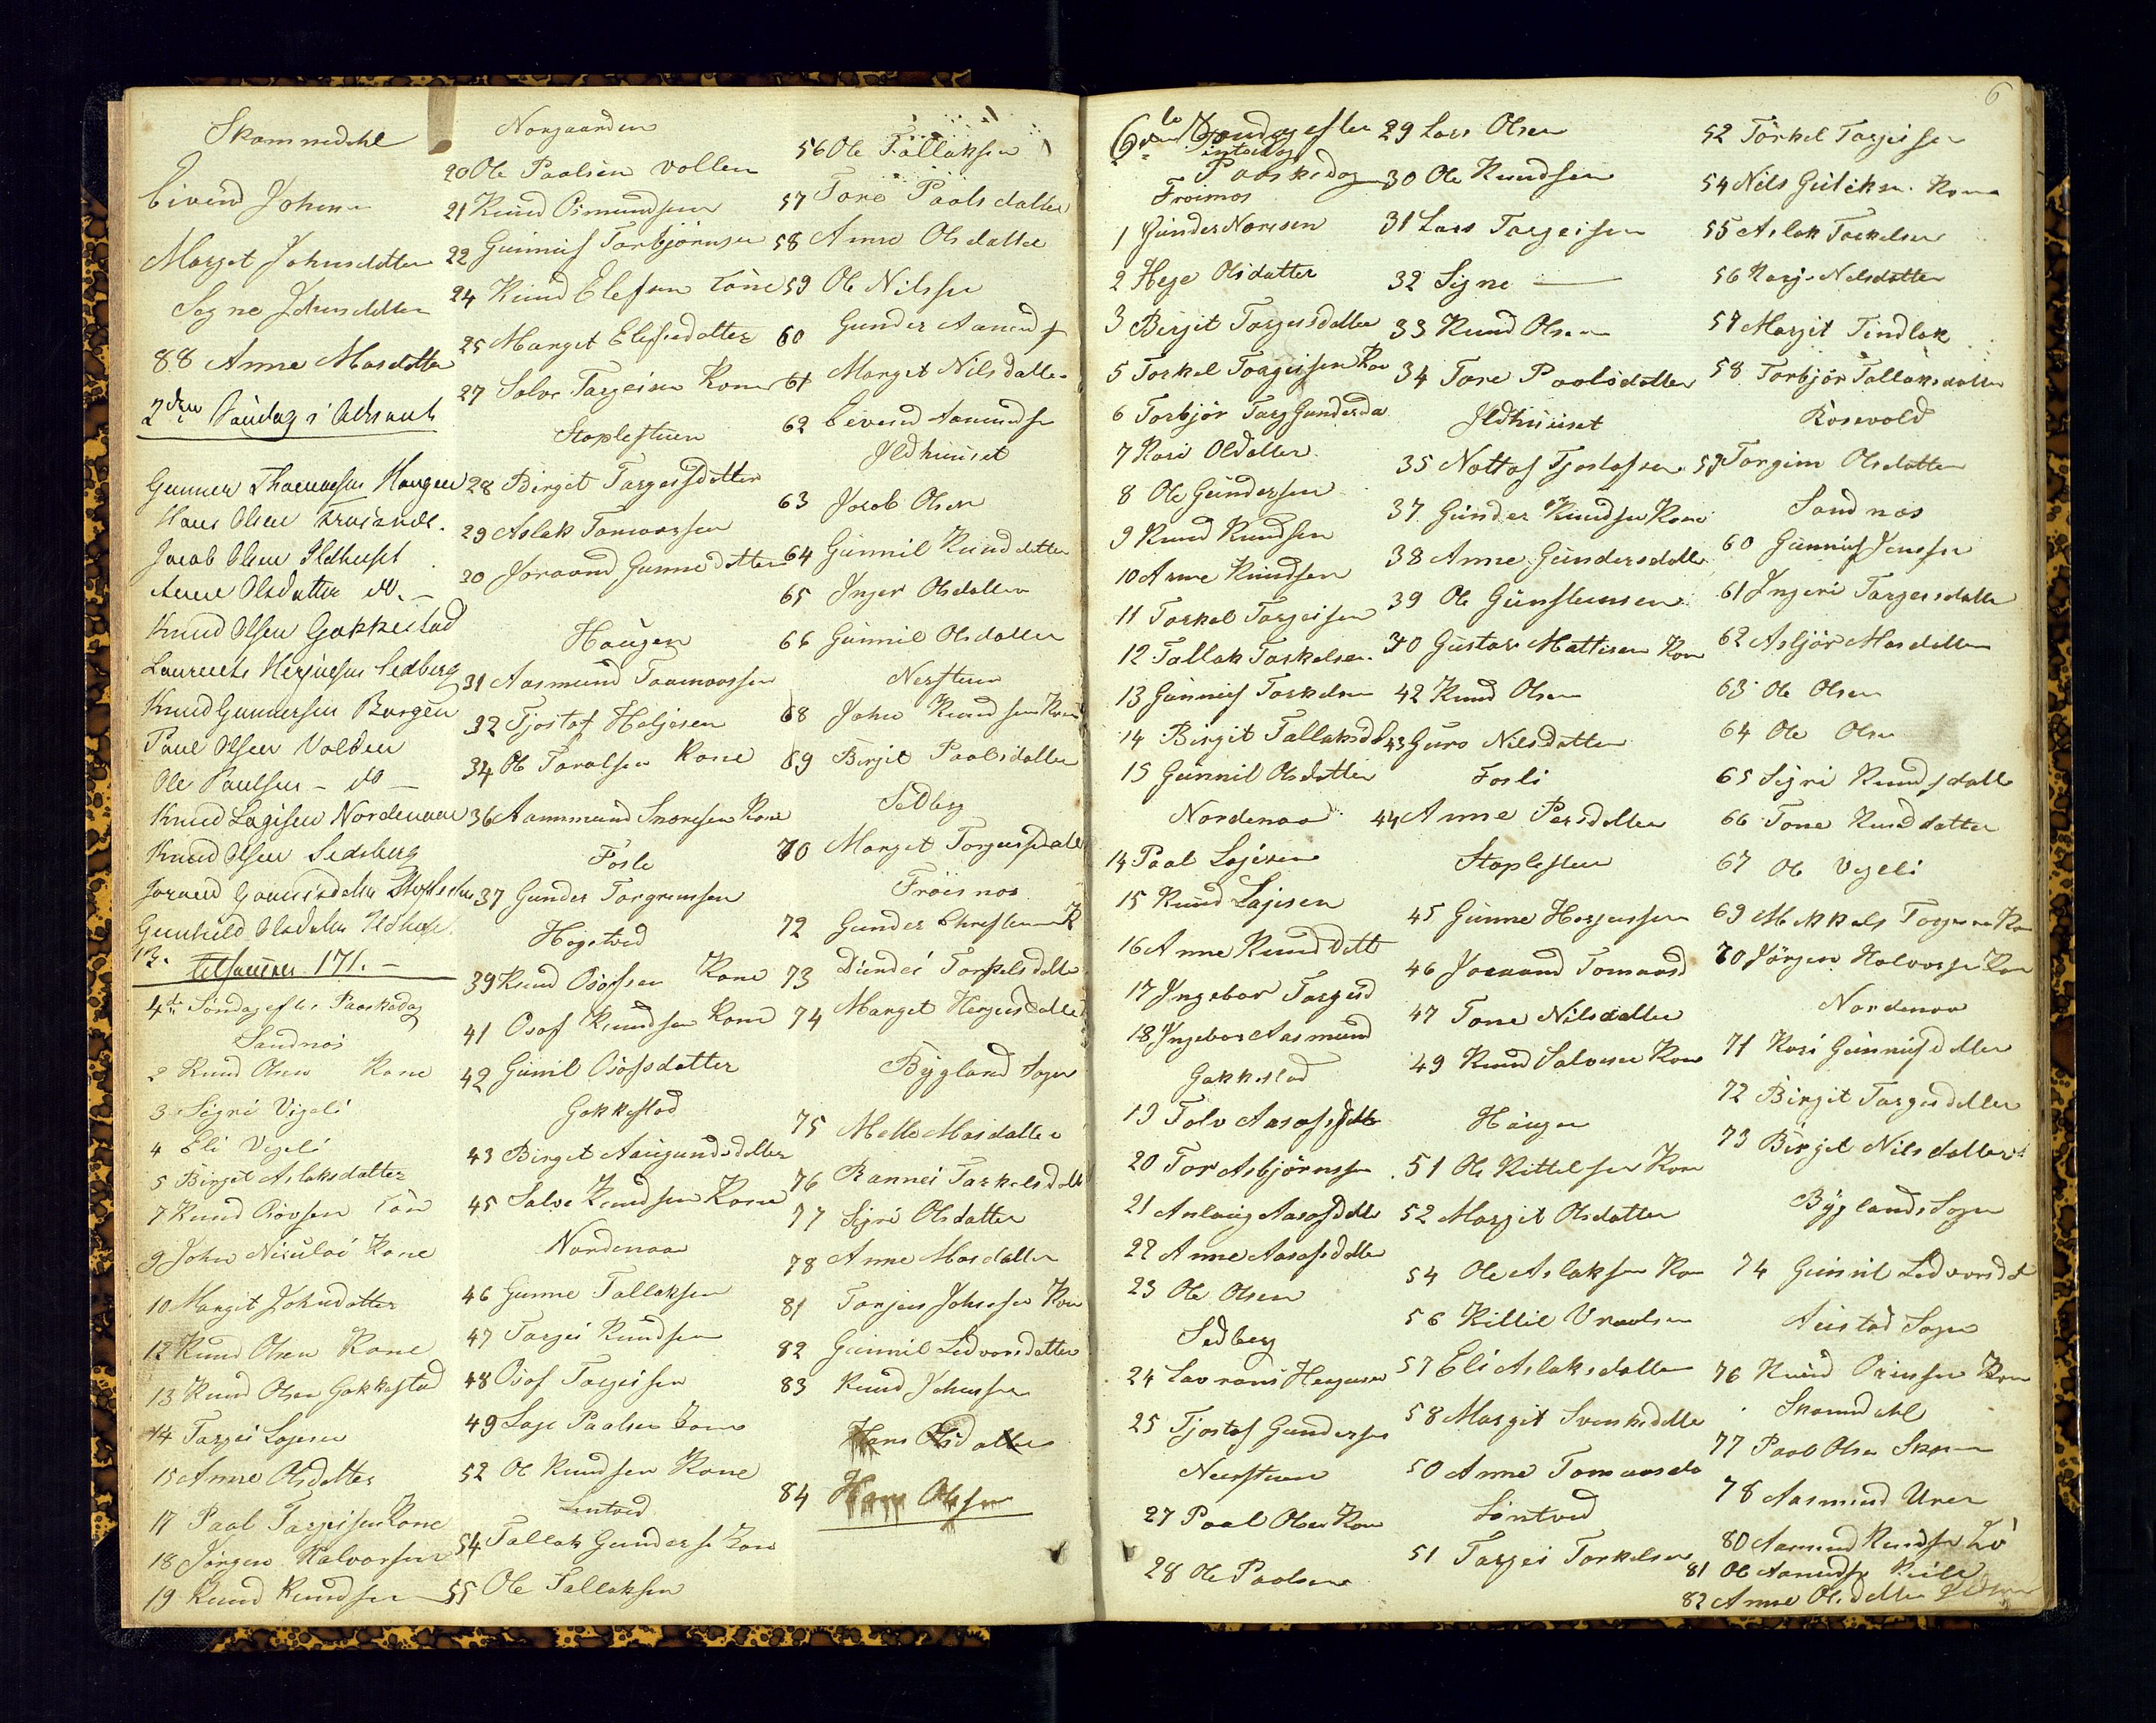 Skammedahl
Eivind Johnsen
Marget Johnsdatter
Signe Johnsdatter
88 Anne Masdatter
2den Søndag i Advent
Gunner Thomesen Haugen
Hans Olsen
Jacob Olsen Ildhuset
Anne Olsdatter do. –
Knud Olsen Gakkestad
Laurents Herjusen Sedberg
Knud Gunnersen Bergen
Paul Olsen Volden
Ole Paulsen – do –
Knud Lagisen Nordenaae
Knud Olsen Sedsberg
Joraand Gunnisdatter
Gunhild Olsdatter Ildhus.
13.
tilsammen 171. –
4de Søndag efter Paaskedag
Sandnæs
2 Knud Olsen Kone
3 Sigri Vigeli
4 Eli Vegeli
5 Birgit Aslaksdatter
7 Knud Osovsen Kone
9 John Niculai Kone
10 Margit Johndatter
12 Knud Olsen Kone
13 Knud Olsen Gakkestad
14 Targei Lagesen
15 Anne Olsdatter
17 Paal Targeisen Kone
18 Jørgen Halvorsen
19 Knud Knudsen
Norgaarden
20 Ole Paalsen Vollen
21 Knud Osmundsen
22 Gunnuf Torbjørnsen
24 Knud Elefsen Kone
25 Marget Elefsdatter
27 Salve Targeisen Kone
Staplestuen
28 Birgit Targeisdatter
29 Aslak Tomaassen
30 Joraand Gunnedatter
Haugen
31 Aasmund Taamaassen
32 Tjostof Haljesen
34 Ole Taralsen Kone
36 Aanmund Snaresen Kone
Fosle
37 Gunder Torgrimsen
Hogstved
39 Knud Osofsen Kone
41 Osof Knudsen Kone
42 Gunil Osofsdatter
Gakkestad
43 Birget Aanundsdatter
45 Salve Knudsen Kone
Nordenaa
46 Gunne Tallaksen
47 Targei Knudsen
48 Osof Targeisen
49 Lage Paalsen Kone
52 Ole Knudsen Kone
Lintved
54 Tallak Gunderse Kone
55 Ole Tallaksen
56 Ole Tallaksen
57 Tone Paalsdatter
58 Anne Olsdatter
59 Ole Nilssen
60 Gunder Aanundsen
61 Marget Nilsdatter
62 Eivind Aanundsen
Ildhuuset
63 Jacob Olsen
64 Gunnil Knudsdatter
65 Inger Olsdatter
66 Gunnil Olsdatter
Nerstuen
68 John Knudsen Kone
69 Birgit Paalsdatter
Sedberg
70 Marget Torgeisdatt
Frøisnæs
72 Gunder Christensen K
73 Torkelsdatter
74 Marget Herjusdatter
Bygland Sogn
75 Mette Masdatter
76 Rannei Tarkelsdatt
77 Sigri Olsdatter
78 Anne Masdatter
81 Tarjus Johnsen Kone
82 Gunnil Ledvorsdatter
83 Knud Johnsen
Hans Olsdatter
84 Hans Olssen
6
6te Søndag efter
Paaskedag
Frøisnæs
1 Gunder Noresen
2 Hege Olsdatter
3 Birgit Targeisdatter
5 Torkel Toargeissen Kone
6 Torbjør Targ Gundersda
7 Kari Olsdatter
8 Ole Gundersen
9 Knud Knudsen
10 Anne Knudsen
11 Torkel Targeisen
12 Tallak Torkelsen
13 Gunnuf Torkelsen
14 Birgit Tallaksd
15 Gunnil Olsdatter
Nordenaa
14 Paal Lagisen
15 Knud Lagisen
16 Anne Knudsdatt
17 Ingebor Targeisd
18 Ingebor Aasmund
Gakkestad
19 Tolv Aasofsdatter
20 Tor Asbjørnsen
21 Anlaug Aasofsdatter
22 Anne Aasofsdatter
23 Ole Olsen
Sedberg
24 Lavrans Hergusen
25 Tjostof Gundersen
Neerstuen
27 Paal Olsen Kone
28 Ole Paalsen
29 Lars Olsen
30 Ole Knudsen
31 Lars Targeisen
32 Signe —
33 Knud Olsen
34 Tore Paalsdatter
Ildhuuset
35 Nottof Tjostofsen
37 Gunder Knudsen Kone
38 Anne Gundersdatter
39 Ole Gunstensen
40 Gustav Mattisen Kone
42 Knud Olsen
43 Guro Nilsdatter
Fosli
44 Anne Persdatter
Staplestuen
45 Gunne Herjussen
46 Joraand Tomaasd
47 Tone Nilsdatter
49 Knud Salvesen Kone
Haugen
51 Ole Kittelsen Kone
52 Margit Olsdatter
54 Ole Aslaksen Kone
56 Killie Vraalsen
57 Eli Aslaksdatter
58 Margit Svenkedatter
50 Anne Tomaasda
Lontved
51 Targei Torkelsen
52 Torkel Targeissen
54 Nils Guliksen Kone
55 Aslak Torkelsen
56 Kari Nilsdatter
57 Margit Tindlak
58 Torbjør Tallaksdatter
Rosevold
59 Torgim Olsdatter
Sandnæs
60 Gunnuf Jensen
61 Ingeri Targeisdatter
62 Asbjør Masdatter
63 Ole Olsen
64 Ole Olsen
65 Sigri Knudsdatter
66 Tone Knudsdatter
67 Ole Vegeli
69 Mikkels Torgersen Kone
70 Jørgen Halvorsen Kone
Nordenaa
71 Kari Gunnufsdatter
72 Birgit Targeisdatter
73 Birgit Nilsdatter
Byglands Sogn
74 Gunnil Ledvorsdt
Austad Sogn
76 Knud Kone
Skomedahl
77 Paal Olsen
78 Aasmund Urer
80 Aasmund Knudsen
81 Ole Aanundsen
82 Anne Olsdatter